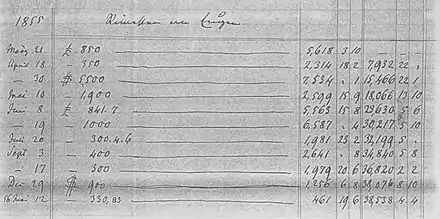 1855
März 21 £ 850 5,618 3 10
April 18 – 350 2,314 18 2 7932 22 –
– 30 $ 5,500 7,534 – 1 15,466 22 1
Mai 16 – 1,900 2,599 15 9 18,066 13 10
Juni 8 £ 841.7 5,563 15 8 23,630 5 6
– 19 – 1000 6,587 – 4 30,217 5 10
Juli 20 – 300.4.6 1,981 23 2 32,199 5 –
Sept 3 – 400 2641 – 8 34,840 5 8
– 17 – 300 1,979 20 6 36,820 2 2
Dec 29 $ 900 1,256 6 8 38,076 8 10
56 12 – 330,83 461 19 6 38,538 4 4